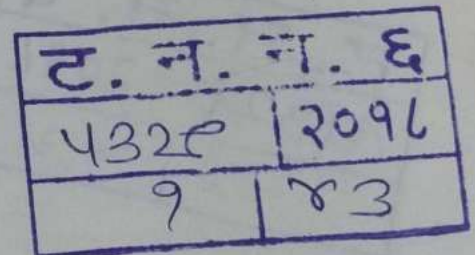 ट. न. न. ६
५३२९ | २०१८
१ | ४३